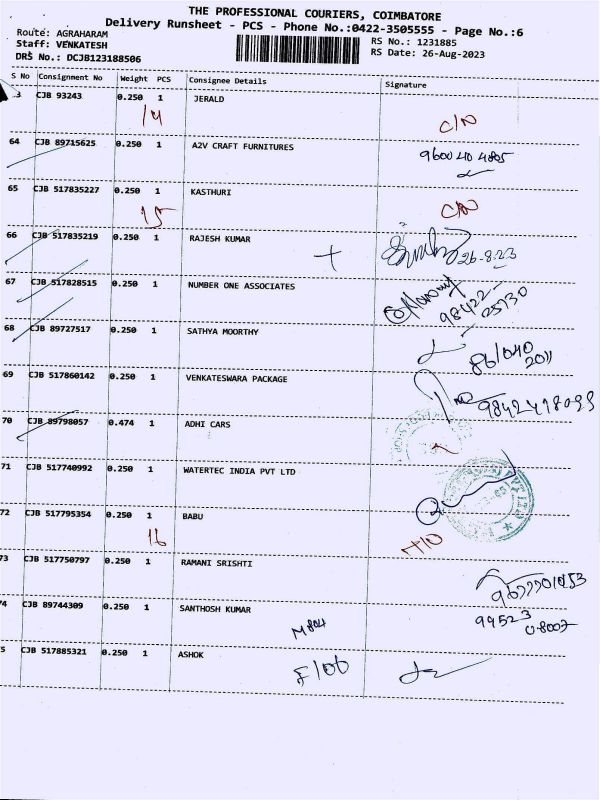 THE PROFESSIONAL COURIERS, COIMBATORE
Delivery Runsheet - PCS - Phone No.:0422-3505555 - Page No.:6
Route: AGRAHARAM
Staff: VENKATESH
DRS No.: DCJB123188506
RS No.: 1231885
RS Date: 26-Aug-2023
S No Consignment No Weight PCS Consignee Details Signature
3 CJB 93243 0.250 1 JERALD
14 C/N
64 CJB 89715625 0.250 1 A2V CRAFT FURNITURES
9600 40 4805
65 CJB 517835227 0.250 1 KASTHURI
15 C/N
66 CJB 517835219 0.250 1 RAJESH KUMAR
26-8-23
67 CJB 517828515 0.250 1 NUMBER ONE ASSOCIATES
98422
25730
68 CJB 89727517 0.250 1 SATHYA MOORTHY
861040
2011
69 CJB 517860142 0.250 1 VENKATESWARA PACKAGE
70 CJB 89798057 0.474 1 ADHI CARS
71 CJB 517740992 0.250 1 WATERTEC INDIA PVT LTD
72 CJB 517795354 0.250 1 BABU
16
73 CJB 517750797 0.250 1 RAMANI SRISHTI
74 CJB 89744309 0.250 1 SANTHOSH KUMAR
99523
08007
M804
5 CJB 517885321 0.250 1 ASHOK
F106